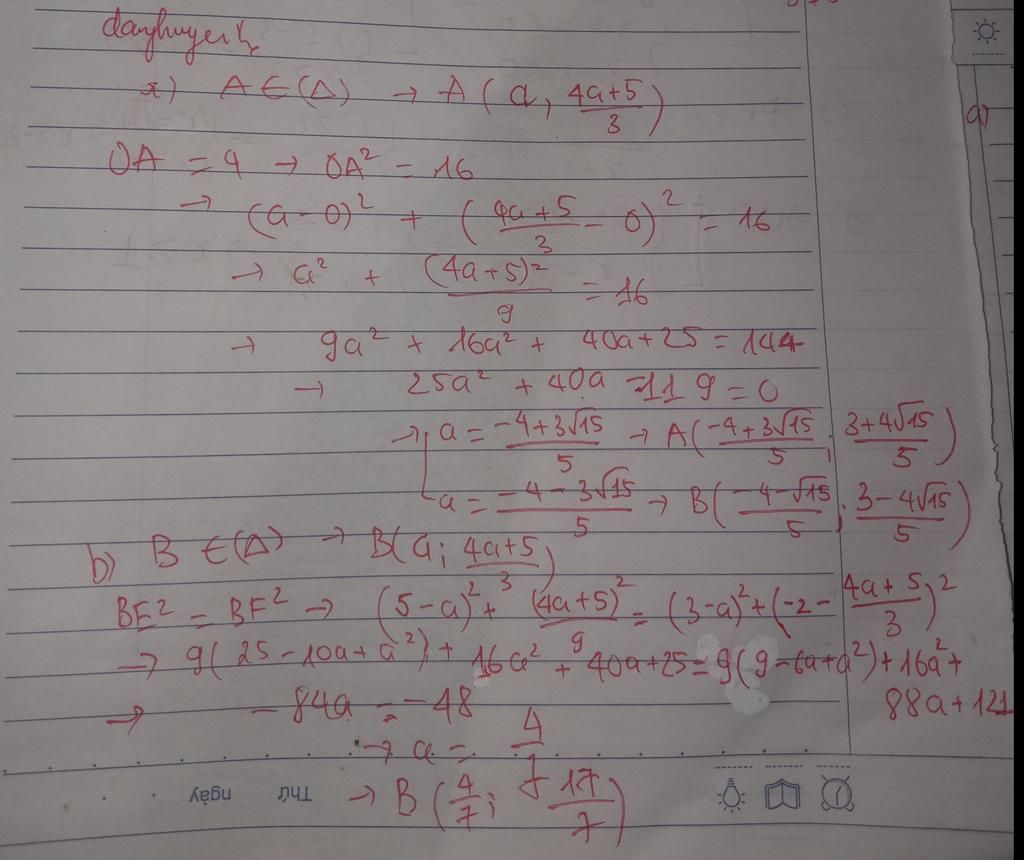 danyhuyenk
a) A ∈ (Δ) → A ( a, (4a+5)/3 )
OA = 4 → OA² = 16
→ (a - 0)² + ( (4a+5)/3 - 0 )² = 16
→ a² + (4a+5)²/9 = 16
→ 9a² + 16a² + 40a + 25 = 144
→ 25a² + 40a - 119 = 0
→ a = (-4+3√15)/5 → A( (-4+3√15)/5 ; (3+4√15)/5 )
a = (-4-3√15)/5 → B( (-4-√15)/5 ; (3-4√15)/5 )
b) B ∈ (Δ) → B( a ; (4a+5)/3 )
BE² = BF² → (5-a)² + (4a+5)²/9 = (3-a)² + (-2 - (4a+5)/3)²
→ 9(25 - 10a + a²) + 16a² + 40a + 25 = 9(9 - 6a + a²) + 16a² +
88a + 121
→ -84a = -48
→ a = 4/7
→ B ( 4/7 ; 17/7 )
Thứ ngày
a)